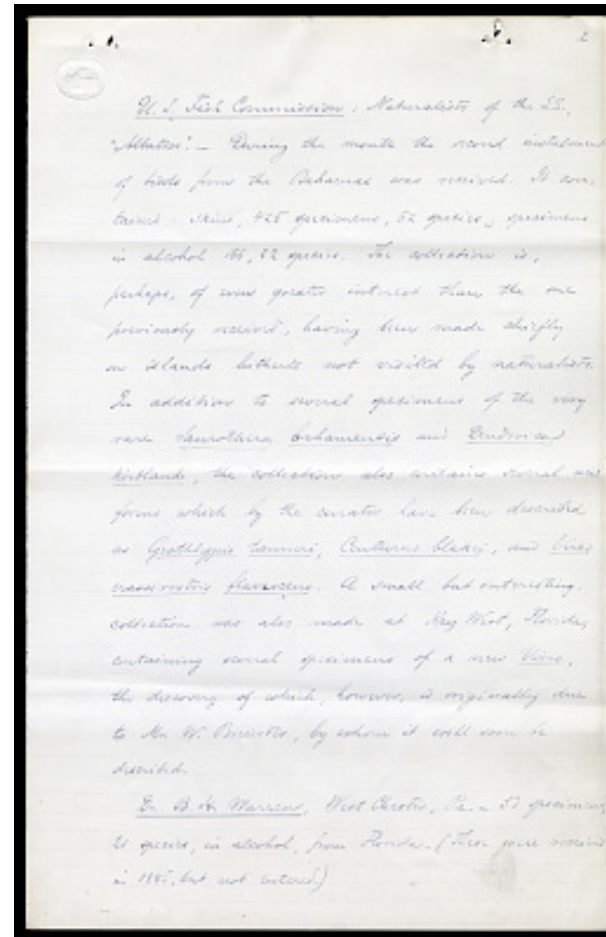 2
U. S. Fish Commission: Naturalists of the S.S.
"Albatross". — During the month the second instalment
of birds from the Bahamas was received. It con-
tained: skins, 425 specimens, 62 species; specimens
in alcohol species. The collection is,
perhaps, of even greater interest than the one
previously received, having been made chiefly
on islands hitherto not visited by naturalists.
In addition to several specimens of the very
rare Saurothera bahamensis and Dendroica
kirtlandi, the collection also contains several new
forms which by the curator have been described
as Geothlypis tanneri, Centurus blakei, and Vireo
crassirostris flavescens. A small but interesting
collection was also made at Key West, Florida,
containing several specimens of a new Vireo,
the discovery of which, however, is originally due
to Mr. W. Brewster, by whom it will soon be
described.
Dr. B. H. Warren, West Chester, Pa. — specimens
21 species, in alcohol, from Florida. (These were received
in 1885, but not entered.)